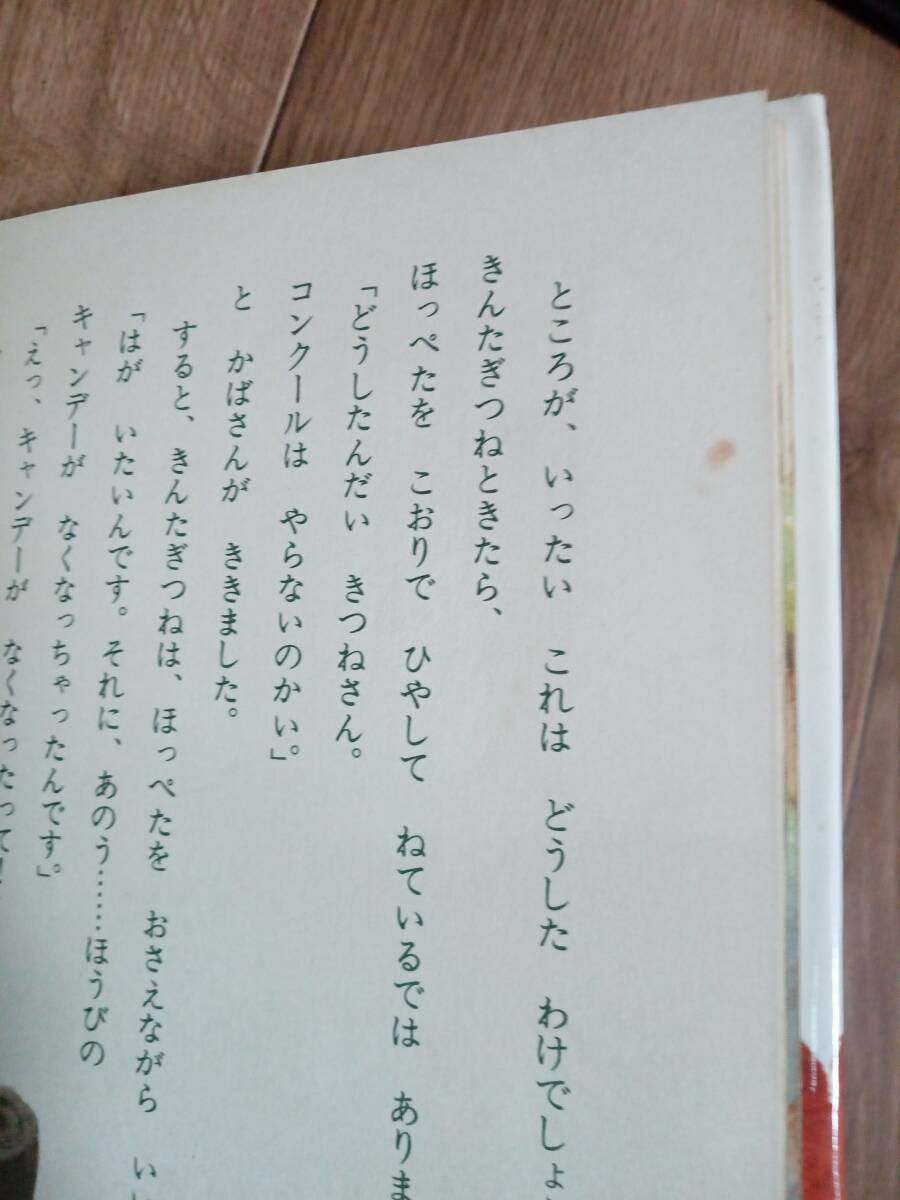 ところが、いったい これは どうした わけでしょ
きんたぎつねときたら、
ほっぺたを こおりで ひやして ねているでは ありま
「どうしたんだい きつねさん。
コンクールは やらないのかい」。
と かばさんが ききました。
すると、きんたぎつねは、ほっぺたを おさえながら い
「はが いたいんです。それに、あのう……ほうびの
キャンデーが なくなっちゃったんです」。
「えっ、キャンデーが なくなったって！